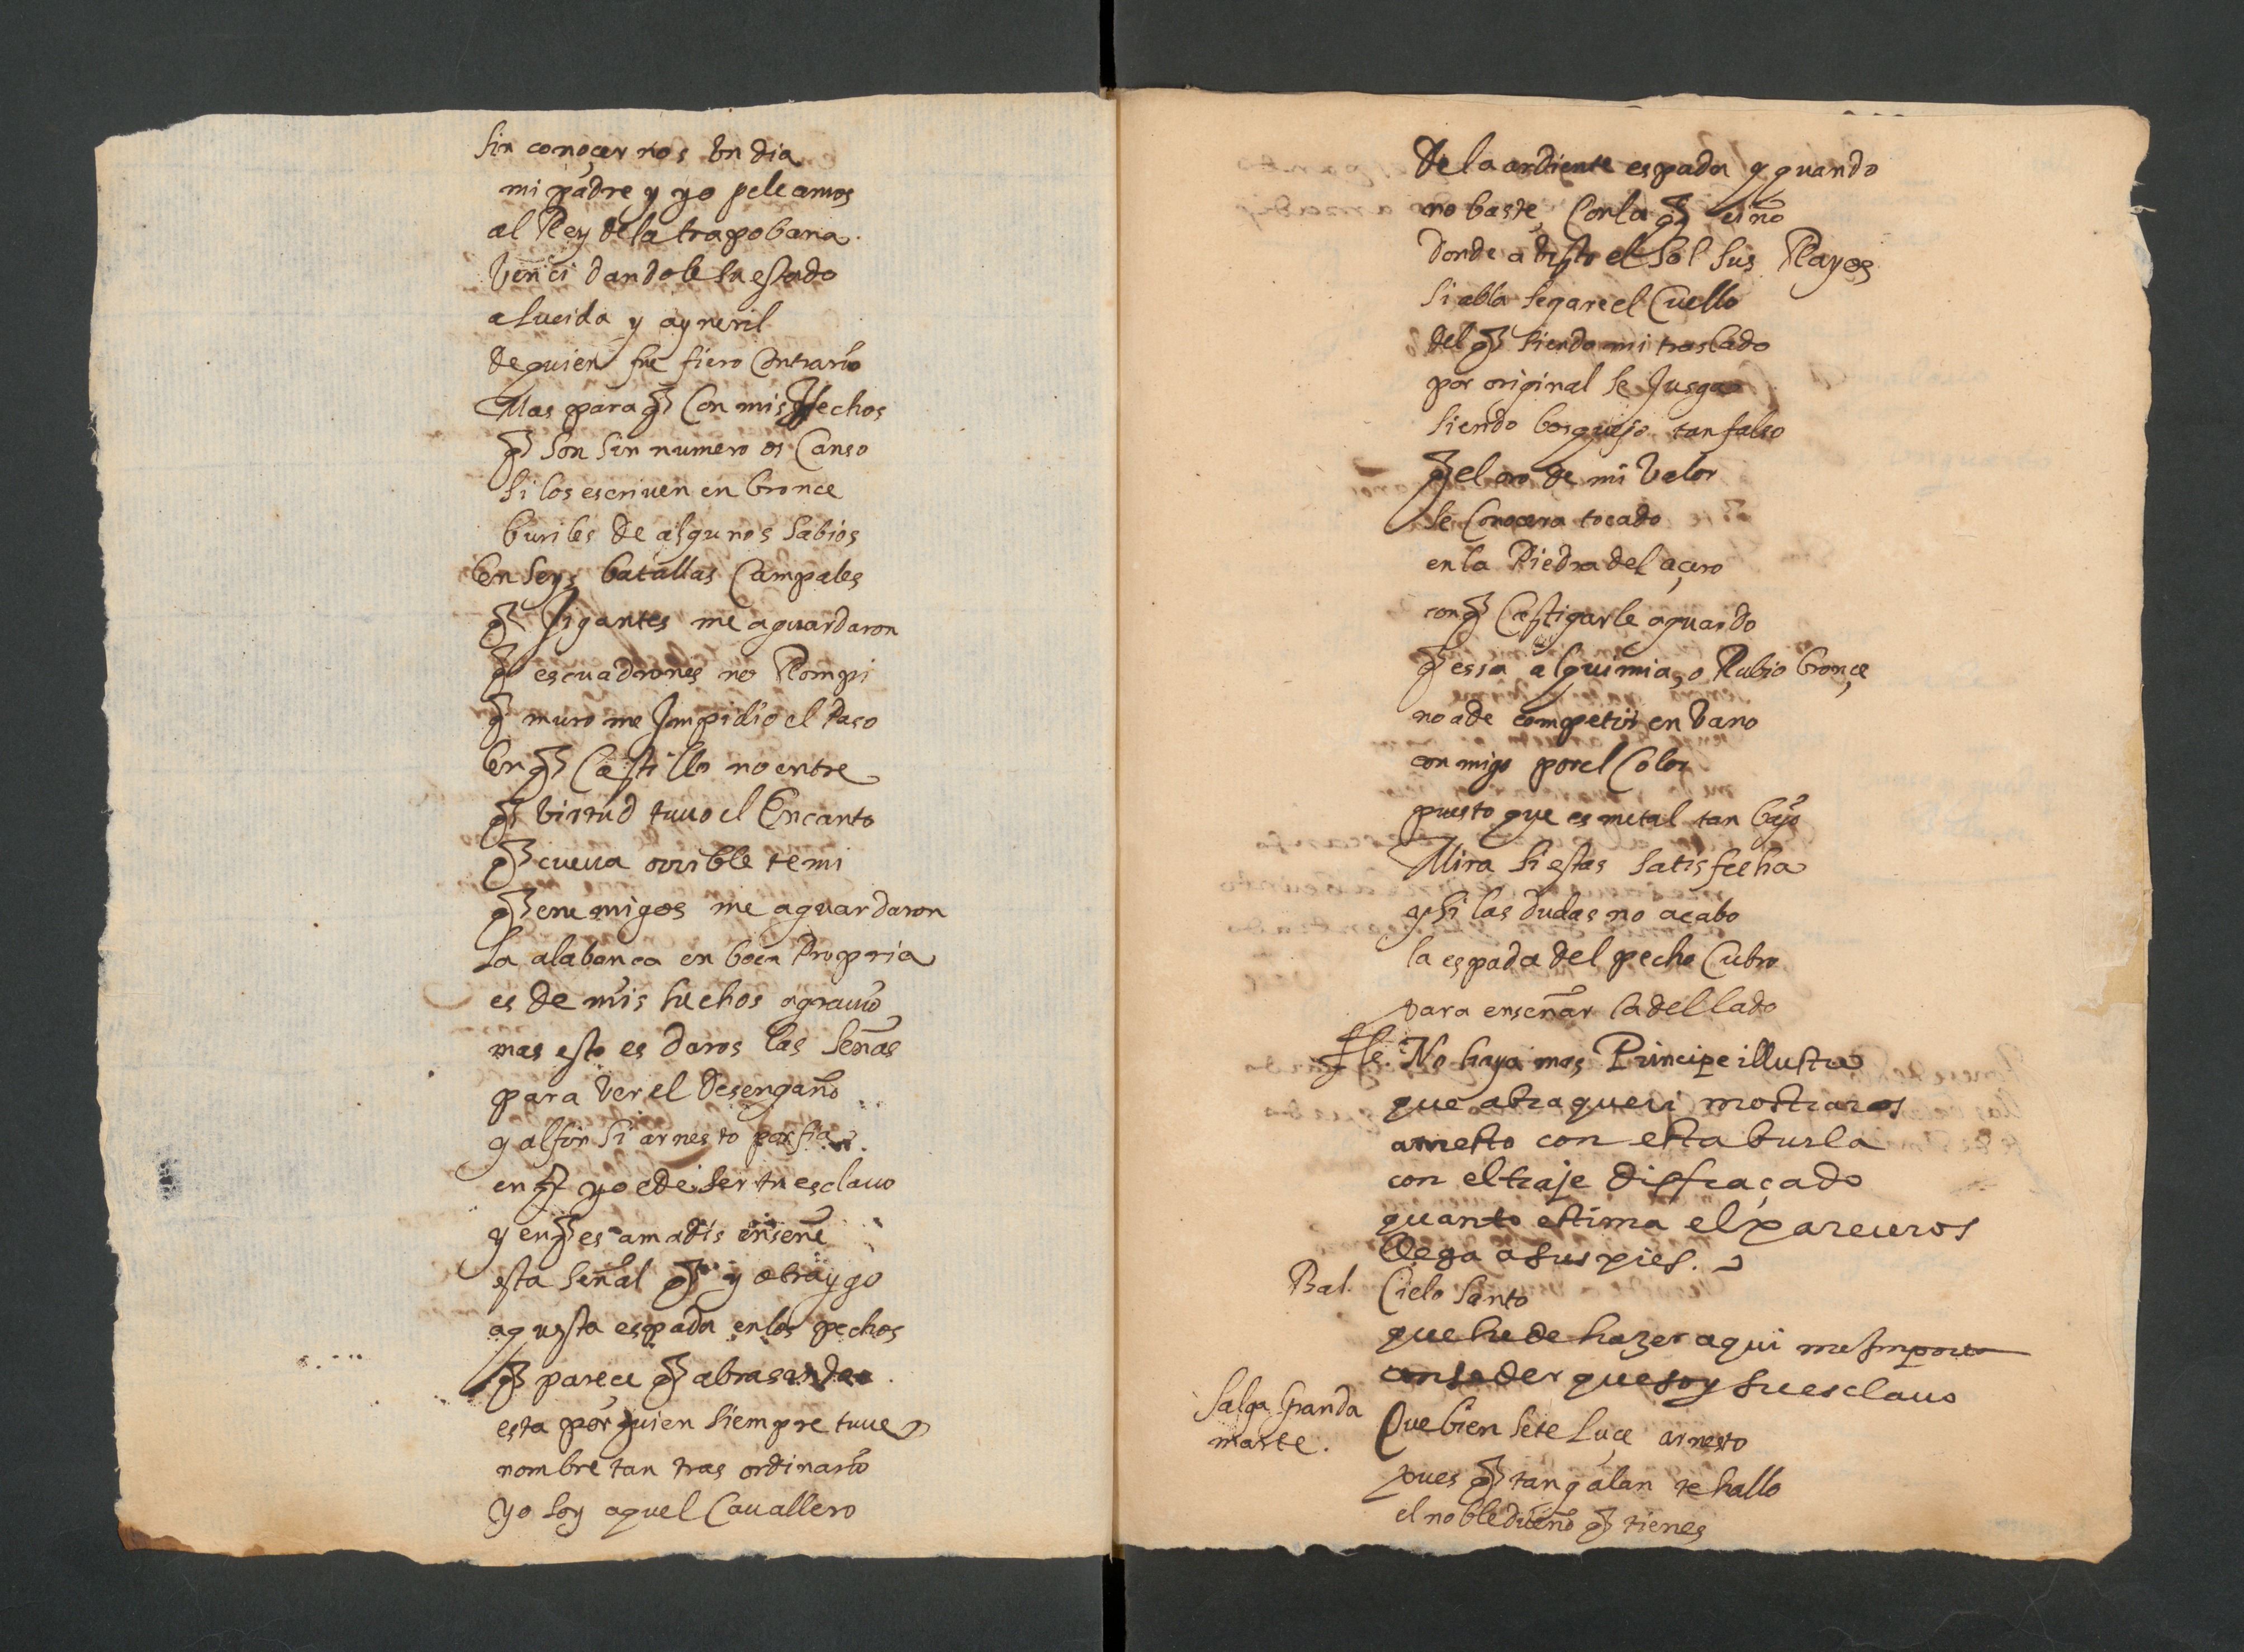 Sin conoçer nos Vn dia
mi padre y yo peleamos
al Rey dela trapobana
Venci dandole su estado
a lucida y ayneril
de quien fue fiero Contrario
Mas para q Con mis Hechos
q Son Sin numero os Canso
Si los escriuen en bronce
buriles de algunos Sabios
En Seys batallas Campales
q Jigantes me aguardaron
q escuadrones no Rompi
q muro me Jmpidio el Paso
En q Castillo no entre
q Virtud tuuo el Encanto
q cueua orrible temi
q enemigos me aguardaron
La alabança en boca Propria
es de mis hechos agrauio
mas esto es daros las Señas
para Ver el Desengaño
y alfin Si arnesto porfia
en q yo e de Ser tu esclauo
y en q es amadis enseñe
esta Señal q y o traygo
aquesta espada en los pechos
q parece q abrasando
esta por quien Siempre tuue
nombre tan tras ordinario
yo Soy aquel Cauallero
De la ardiente espada y quando
no baste Con la q ciño
Donde a visto el Sol Sus Rayos
Si abla Segare el Cuello
del q Siendo mi traslado
por original Se Jusga
Siendo bosquejo tan falso
q el oro de mi Valor
Se Conocera tocado
en la Piedra del açero
con q Castigarle aguardo
q essa alquimia, o Rubio bronçe
no ade competir en Vano
con migo por el Color
puesto que es metal tan bajo
Mira Si estas Satisfecha
y Si las dudas no acabo
la espada del pecho Cubro
para enseñar la del lado
No haya mas Principe illustre
que abra queri mostraros
arnesto con esta burla
con el traje disfraçado
quanto estima el pareceros
llega a sus pies.
Bal. Cielo Santo
que he de hazer aqui me Jmporta
conseder que soy su esclauo
Salga Granda
marte.
Que bien Se te Luçe arnesto
pues q tan galan te hallo
el noble dueño q tienes